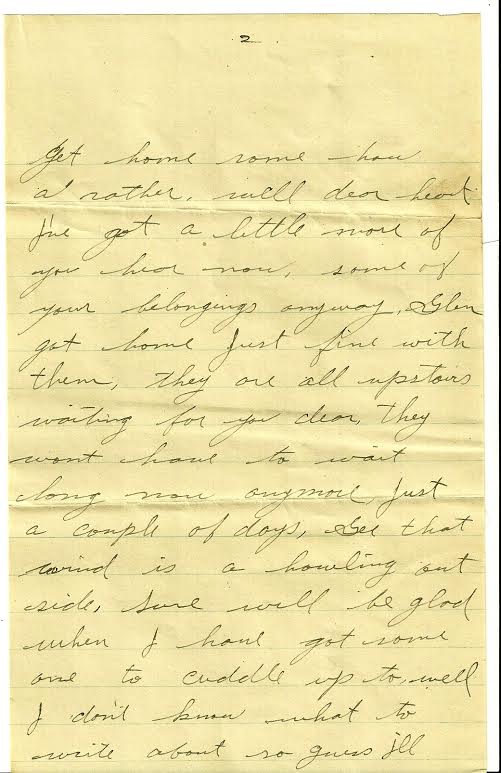 2
Get home some how
a' rather, well dear heart
I've got a little more of
you hear now, some of
your belongings anyway, Glen
got home just fine with
them, they are all upstairs
waiting for you dear, they
wont have to wait
long now anymore, just
a couple of days, Gee that
wind is a howling out
side, sure will be glad
when I have got some
one to cuddle up to, well
I don't know what to
write about so guess I'll